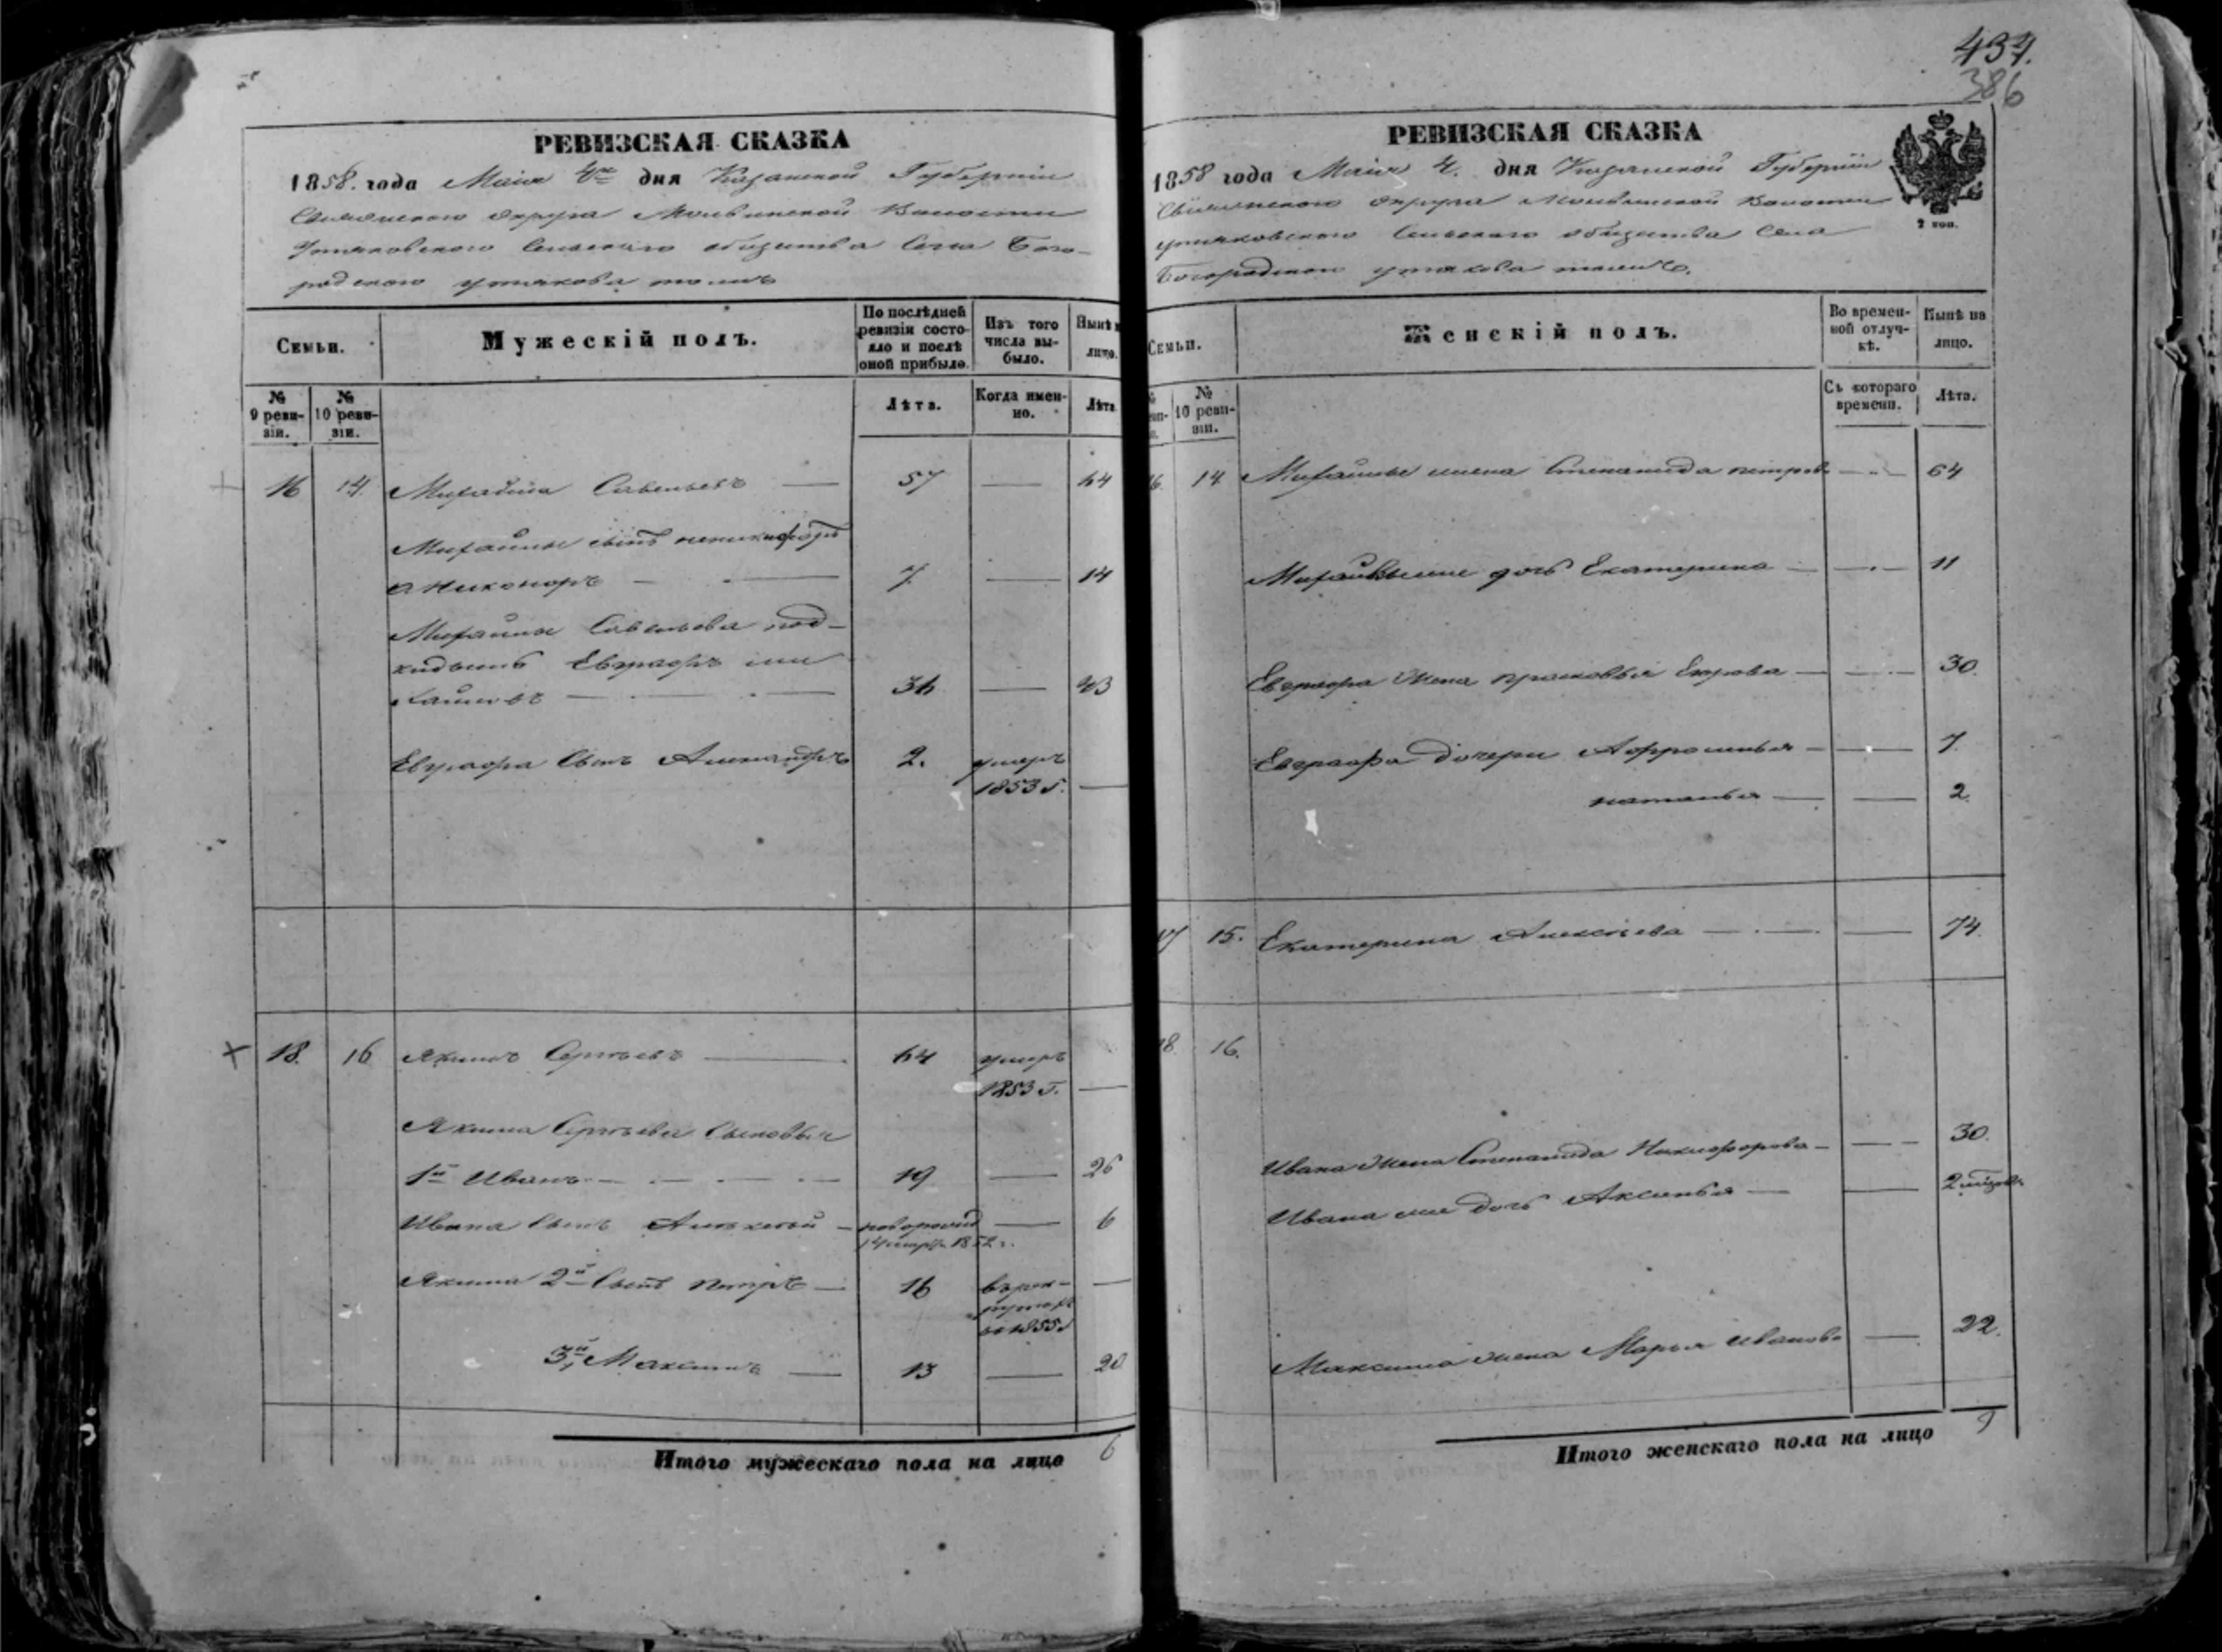 437.
386
РЕВИЗСКАЯ СКАЗКА
1858. года Маія 4го дня Казанской Губерніи
округа Молвинской Волости
Утяковскаго Сельскаго общества Села Бого-
родскаго утякова тожъ
Семьи.
Мужескій полъ.
По послѣдней ревизіи состо-яло и послѣ оной прибыло.
Изъ того числа вы-было.
Нынѣ на лицо.
№ 9 реви-зіи.
№ 10 реви-зіи.
Лѣта.
Когда имен-но.
Лѣта
16 14. Михайла Савельевъ — 57 — 64
Михайлы сынъ
Никоноръ — 7. — 14
Михайлы Савельева под-
кидышъ Евграфъ ми
хайловъ — 36 — 43
Евграфа Сынъ Александръ 2. умеръ
1853 г. —
18. 16 Якимъ Сергѣевъ — 64 умеръ
1853 г. —
Якима Сергѣева Сыновья
1й Иванъ — 19 — 26
Ивана Сынъ Алексѣй — новорожд — 6
1852 г.
Якима 2й Сынъ Петръ — 16 въ рек- —
рутахъ
съ 1855
3й Максимъ — 13 — 20
Итого мужескаго пола на лицо 6
РЕВИЗСКАЯ СКАЗКА
1858 года Маія 4. дня Казанской Губерніи
Свіяжскаго округа Молвинской Волости
утяковскаго Сельскаго общества Села
Богородскаго утякова тожъ.
2 коп.
Семьи.
Женскій полъ.
Во времен-ной отлуч-кѣ.
Нынѣ на лицо.
№ 10 реви-зіи.
Съ котораго времени.
Лѣта.
16. 14 Михайлы жена Степанида петрова — 64
Михайлы дочь Екатерина — 11
Евграфа Жена прасковья — 30.
Евграфа дочери Афросинья — 7.
наталья — 2.
17 15. Екатерина Алексѣева — 74
18. 16.
Ивана Жена Степанида Никифорова — 30.
Ивана дочь Аксинья — 2
Максима жена Марья Иванова — 22.
Итого женскаго пола на лицо 9